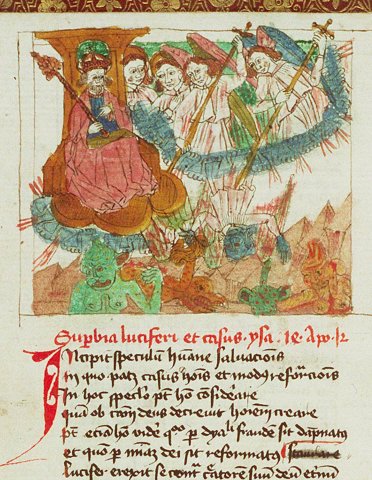 Supbia luciferi et casus . ysa . 18 . Apo . 12
Incipit speculum hūane saluacōis
In quo patȝ casus hoīs et modꝰ reforcōnis
In hoc speclo pt hō cōsiderare
Quā ob causā deus decreuit hoīem creare
Pt eciā hō vidē qūo p dyaɓli fraudē sit dāpnatꝰ
Et quo p mīaȝ dei sit reformatꝰ
Lucifer erexit se cont̄ c̄torem suū deū etnū